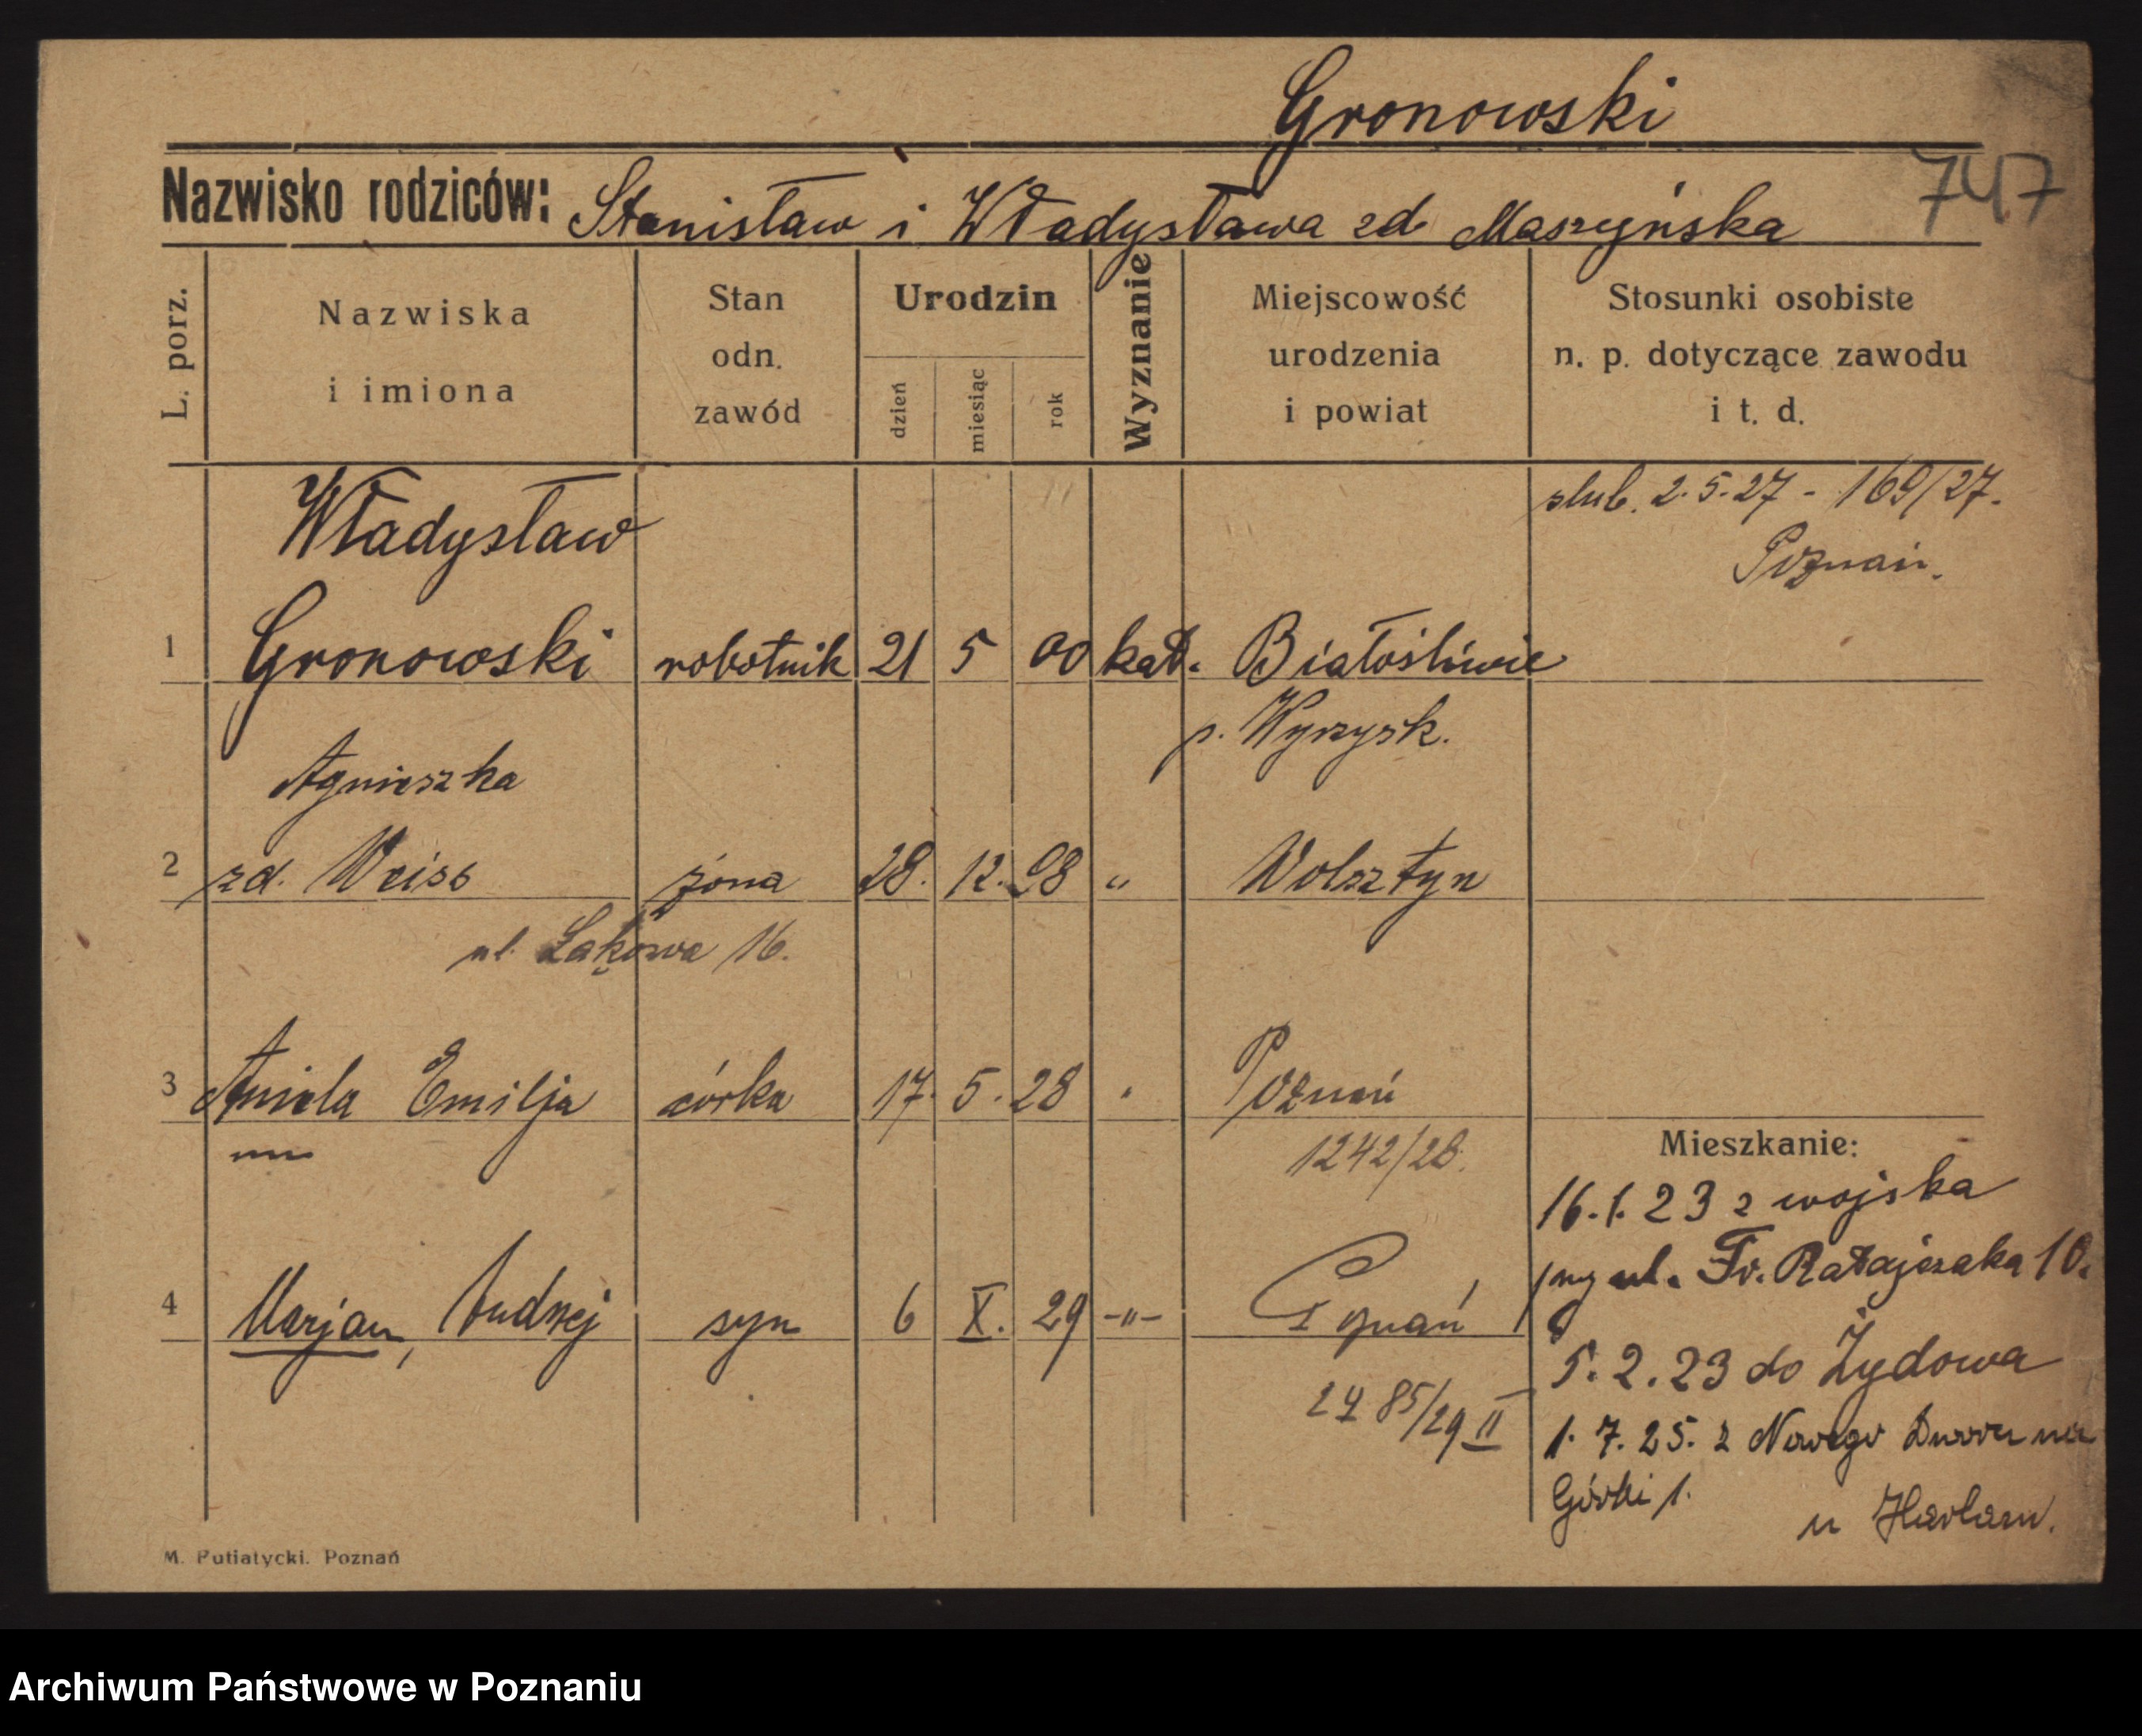 Gronowski
747
Nazwisko rodziców: Stanisław i Władysława zd Maszyńska
L. porz.
Nazwiska i imiona
Stan odn. zawód
Urodzin
dzień miesiąc rok
Wyznanie
Miejscowość urodzenia i powiat
Stosunki osobiste n. p. dotyczące zawodu i t. d.
ślub. 2.5.27 - 169/27.
Poznań.
Władysław
1 Gronowski robotnik 21 5 00 kat. Białośliwie
p. Wyrzysk.
Agnieszka
2 zd. Weiss żona 28. 12. 98 " Wolsztyn
ul. Łąkowa 16.
3 Aniela Emilja córka 17. 5. 28 " Poznań
1242/28.
4 Marjan, Andrzej syn 6 X. 29 -"- Poznań
2485/29 II
Mieszkanie:
16.1.23 z wojska
przy ul. Fr. Ratajczaka 10.
5.2.23 do Żydowa
1.7.25. z Nowego Dworu na
Górki 1.
u Harlam.
M. Putiatycki. Poznań
Archiwum Państwowe w Poznaniu